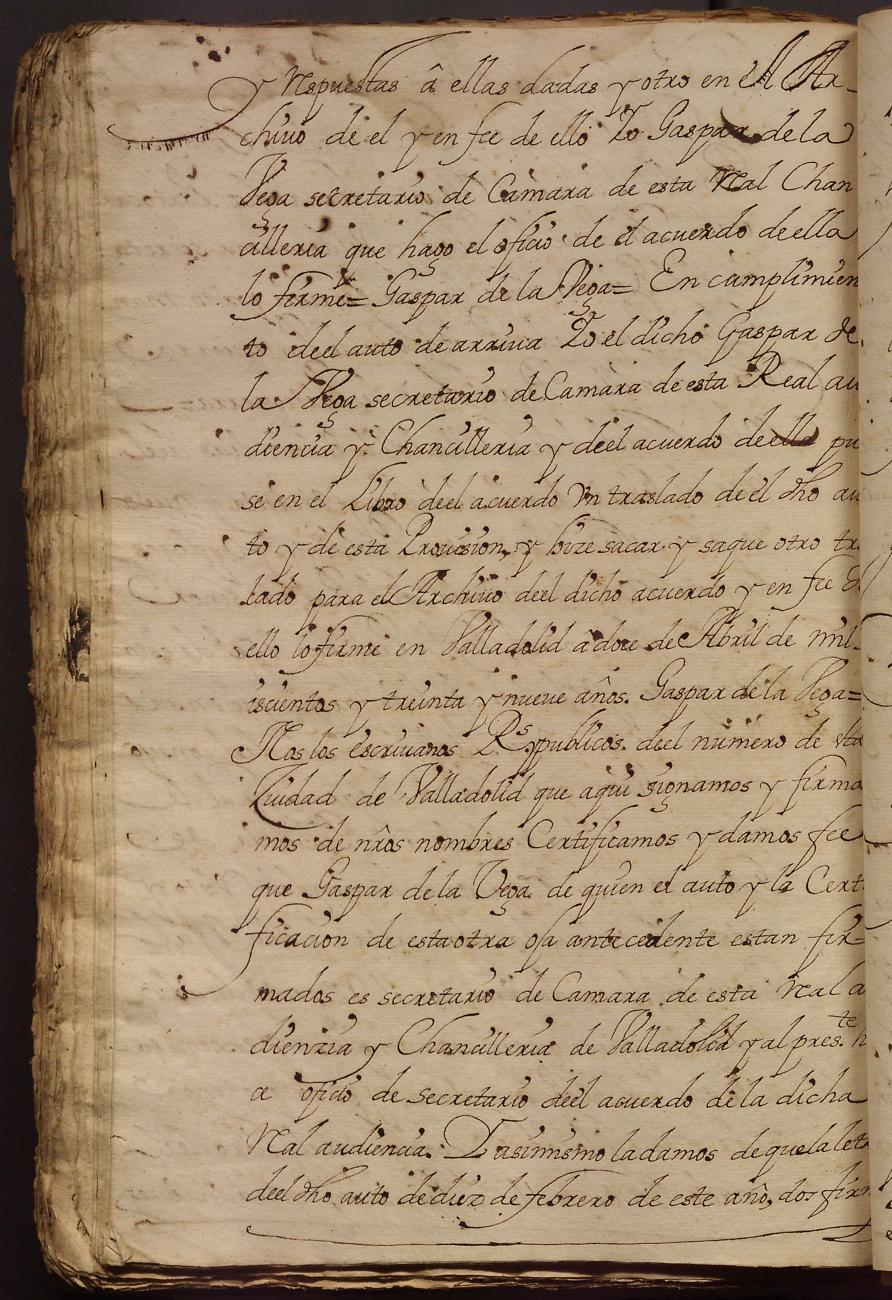 y respuestas â ellas dadas y otro en el Ar-
chivo de el y en fee de ello Yo Gaspar de la
Vega secretario de Camara de esta real Chan
cilleria que hago el oficio de el acuerdo de ella
lo firme= Gaspar de la Vega= En cumplimien
to deel auto de arriva Yo el dicho Gaspar de
la Vega secretario de Camara de esta Real au
diencia y Chancilleria y deel acuerdo de ella pu
se en el Libro deel acuerdo Vn traslado de el dho au
to y de esta Provision, y hize sacar y saque otro tr
lado para el Archivo deel dicho acuerdo y en fee d
ello lo firme en Valladolid â doce de Abril de mil
iscientos y treinta y nueve años. Gaspar de la Vega=
Nos los escrivanos Rs. ppublicos. deel numero de sta
Ziudad de Valladolid que aqui signamos y firma
mos de nros nombres Certificamos y damos fee
que Gaspar de la Vega de quien el auto y la Certi
ficacion de esta otra oja antecedente estan fir=
mados es secretario de Camara de esta real a
dienzia y Chancilleria de Valladolid y al preste. h
ce oficio de secretario deel acuerdo de la dicha
real audiencia. Y asimismo la damos de que la let
deel dho auto de diez de febrero de este año, dos firm